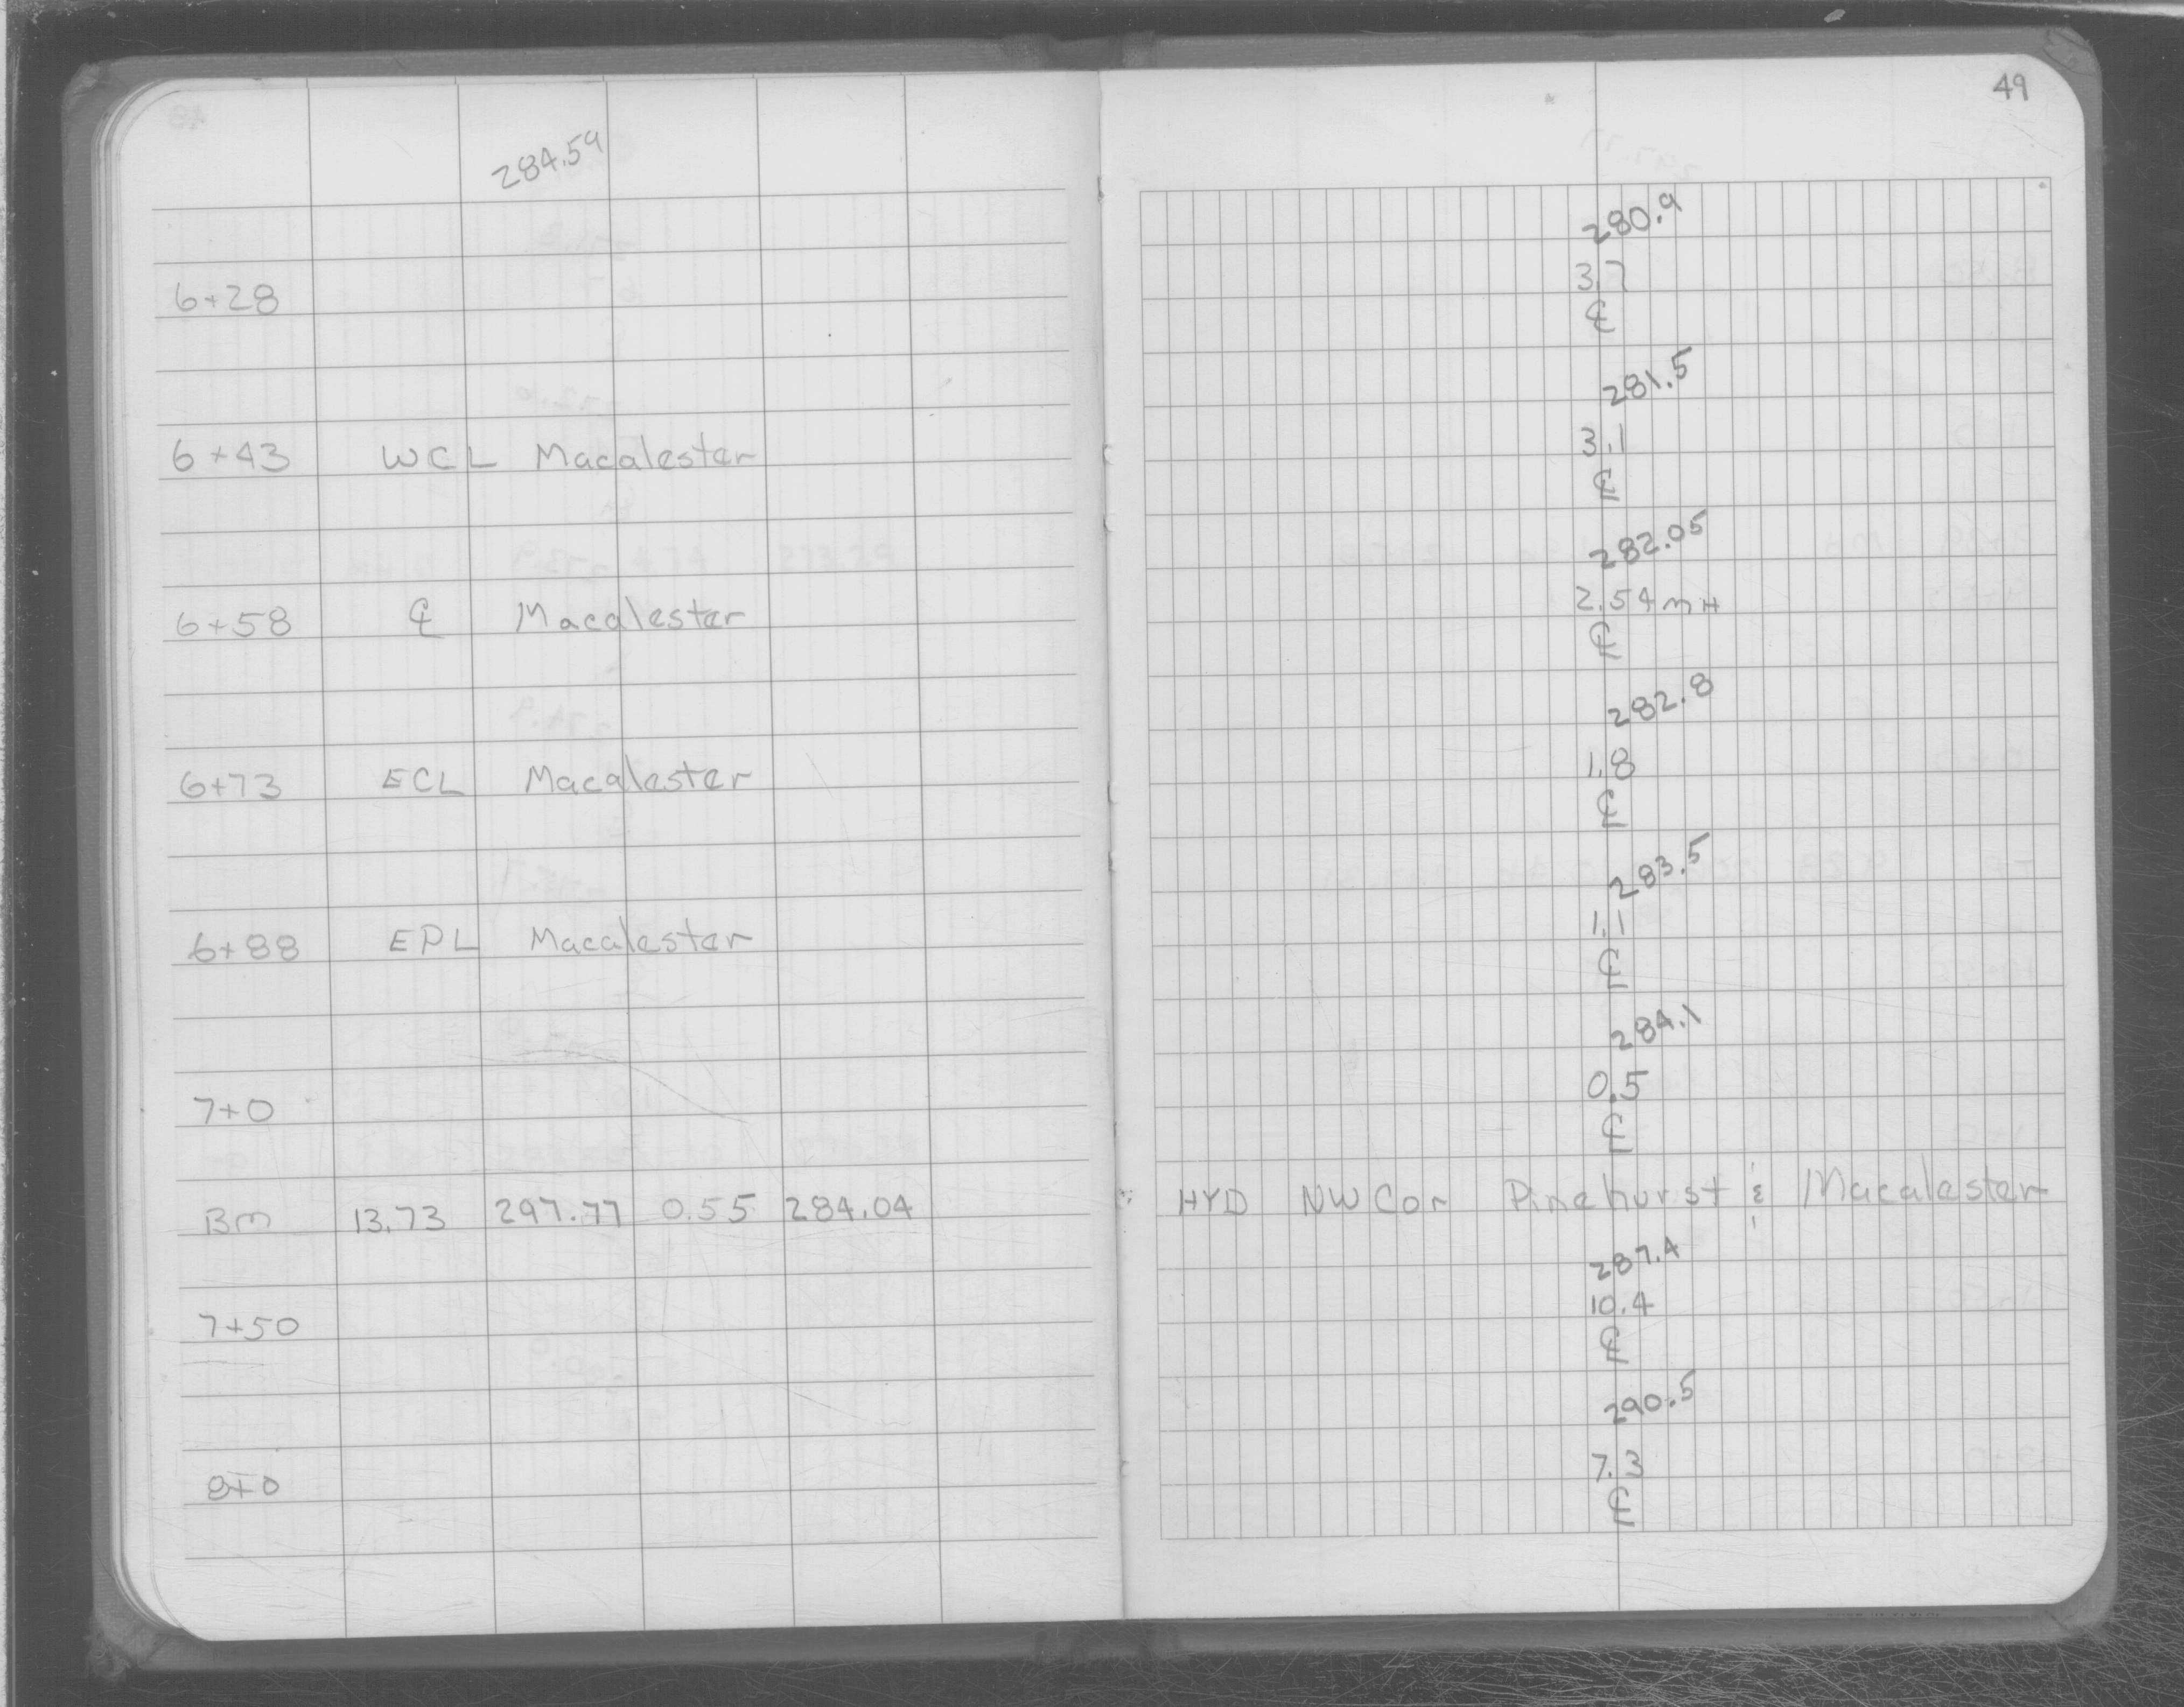 49
284.59
280.9
6+28 3.7
℄
281.5
6+43 WCL Macalester 3.1
℄
282.05
6+58 ℄ Macalester 2.54 mH
℄
282.8
6+73 ECL Macalester 1.8
℄
283.5
6+88 EPL Macalester 1.1
℄
284.1
7+0 0.5
℄
Bm 13.73 297.77 0.55 284.04 HYD NW Cor Pinehurst & Macalester
287.4
7+50 10.4
℄
290.5
8+0 7.3
℄